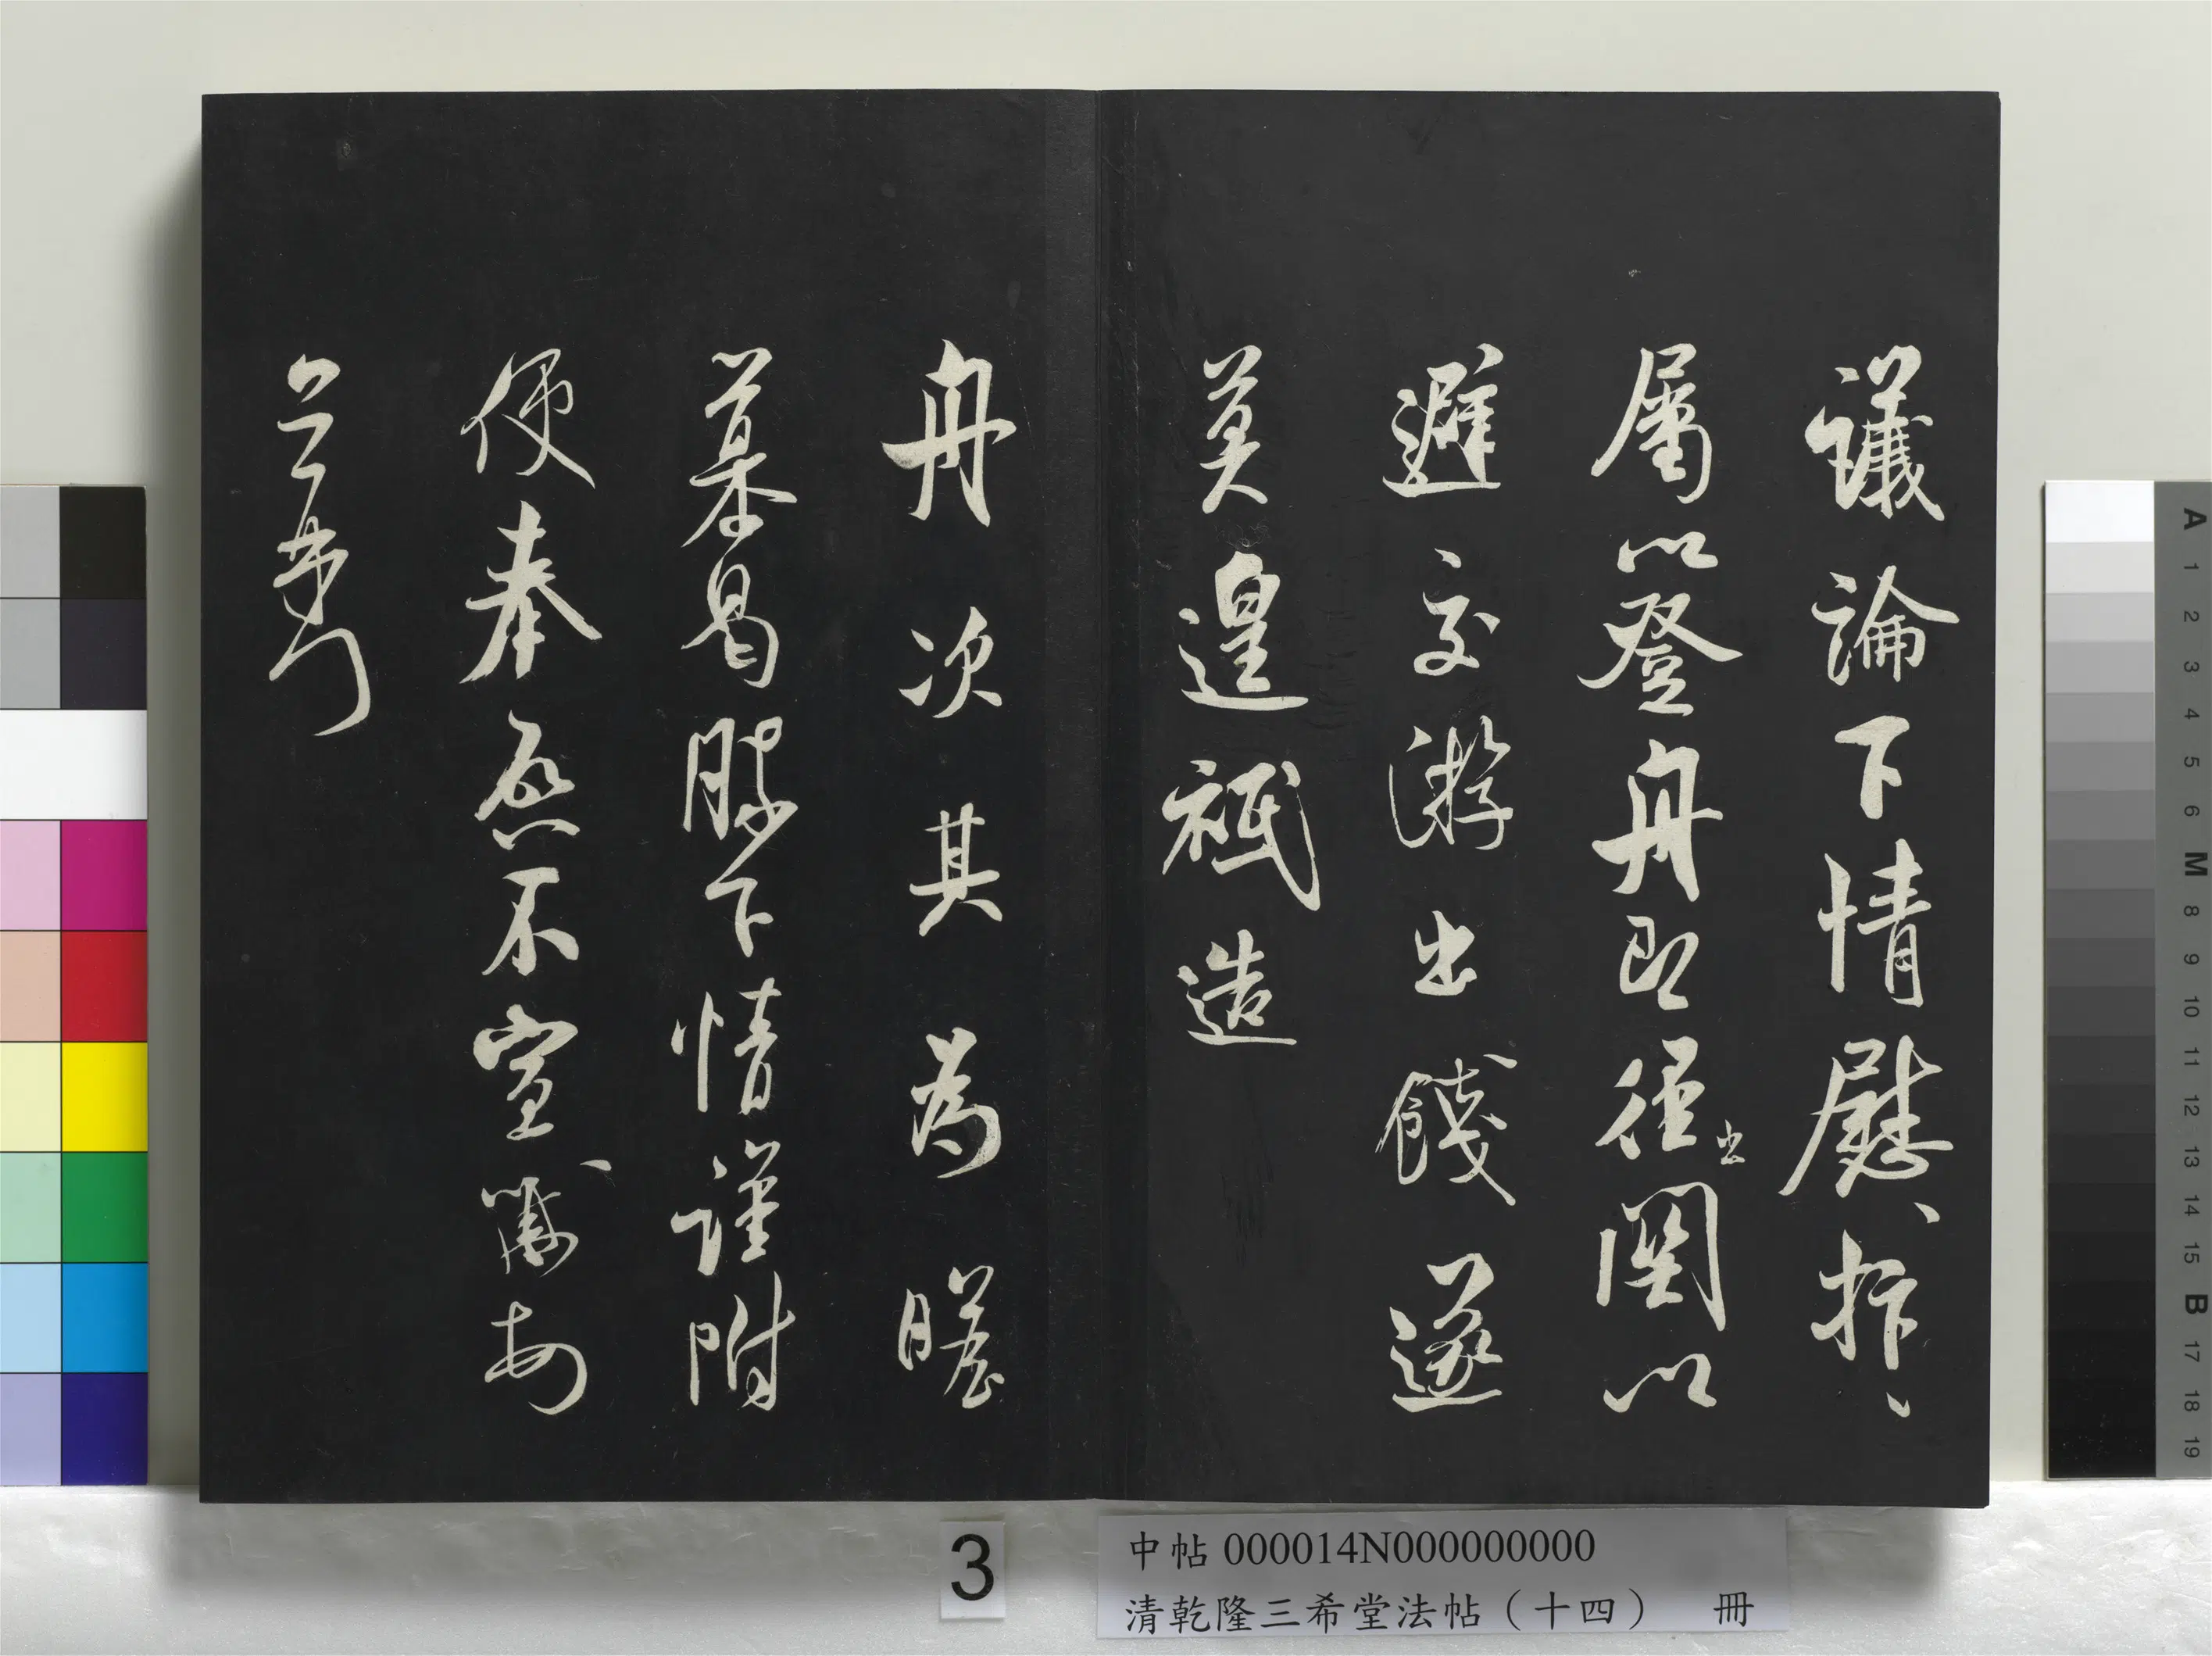 議論下情慰、抃、
屬以登舟即徑出關以
避交游出餞遂
莫遑祗造
舟次其為瞻
慕曷勝下情謹附
便奉啟不宣
3
中帖 000014N000000000
清乾隆三希堂法帖（十四） 冊
A 1 2 3 4 5 6 M 8 9 10 11 12 13 14 15 B 17 18 19